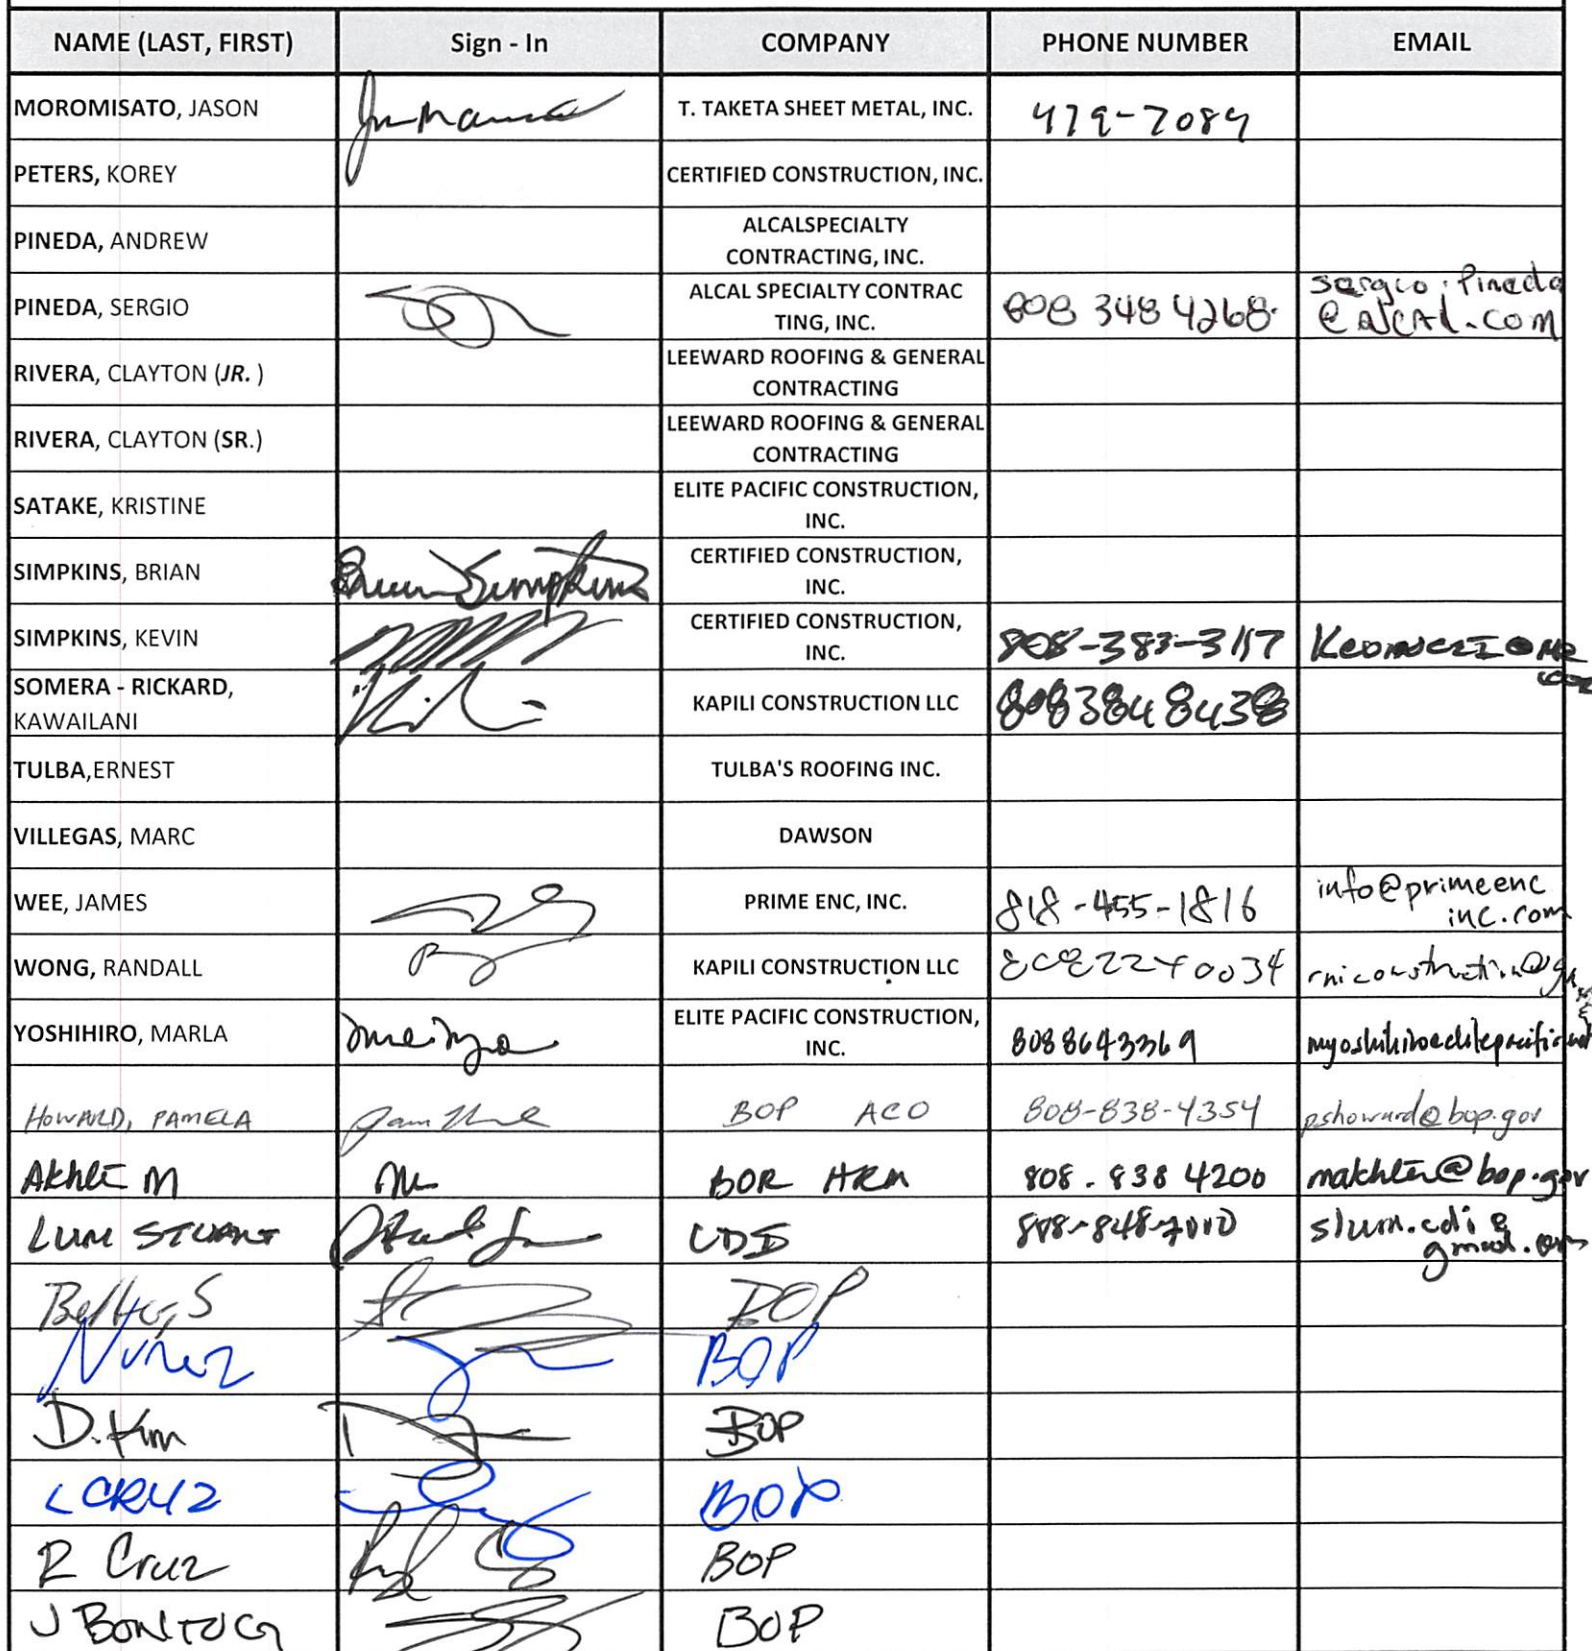 NAME (LAST, FIRST) Sign - In COMPANY PHONE NUMBER EMAIL
MOROMISATO, JASON T. TAKETA SHEET METAL, INC. 479-7089
PETERS, KOREY CERTIFIED CONSTRUCTION, INC.
PINEDA, ANDREW ALCALSPECIALTY
CONTRACTING, INC.
PINEDA, SERGIO ALCAL SPECIALTY CONTRAC 808 348 4268 sergio.pineda
TING, INC. @ALCAL.COM
RIVERA, CLAYTON (JR. ) LEEWARD ROOFING & GENERAL
CONTRACTING
RIVERA, CLAYTON (SR.) LEEWARD ROOFING & GENERAL
CONTRACTING
SATAKE, KRISTINE ELITE PACIFIC CONSTRUCTION,
INC.
SIMPKINS, BRIAN Brian Simpkins CERTIFIED CONSTRUCTION,
INC.
SIMPKINS, KEVIN CERTIFIED CONSTRUCTION, 808-383-3117
INC.
SOMERA - RICKARD,
KAWAILANI KAPILI CONSTRUCTION LLC 8083848438
TULBA,ERNEST TULBA'S ROOFING INC.
VILLEGAS, MARC DAWSON
WEE, JAMES PRIME ENC, INC. 818-455-1816 info@primeenc
inc.com
WONG, RANDALL KAPILI CONSTRUCTION LLC 8082240034
YOSHIHIRO, MARLA ELITE PACIFIC CONSTRUCTION, 8088643369
INC.
HOWARD, PAMELA BOP ACO 808-838-4354 pshoward@bop.gov
M HRM 808.838 4200 @bop.gov
LUM STUART CDI 808-848-7010 slum.cdi@
gmail.com
S BOP
Nuñez BOP
D. Kim BOP
L CRUZ BOP
R Cruz BOP
J BONTOG BOP